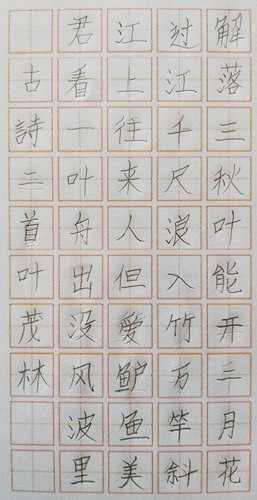 解落三秋叶能开二月花
过江千尺浪入竹万竿斜
江上往来人但爱鲈鱼美
君看一叶舟出没风波里
古詩二首叶茂林